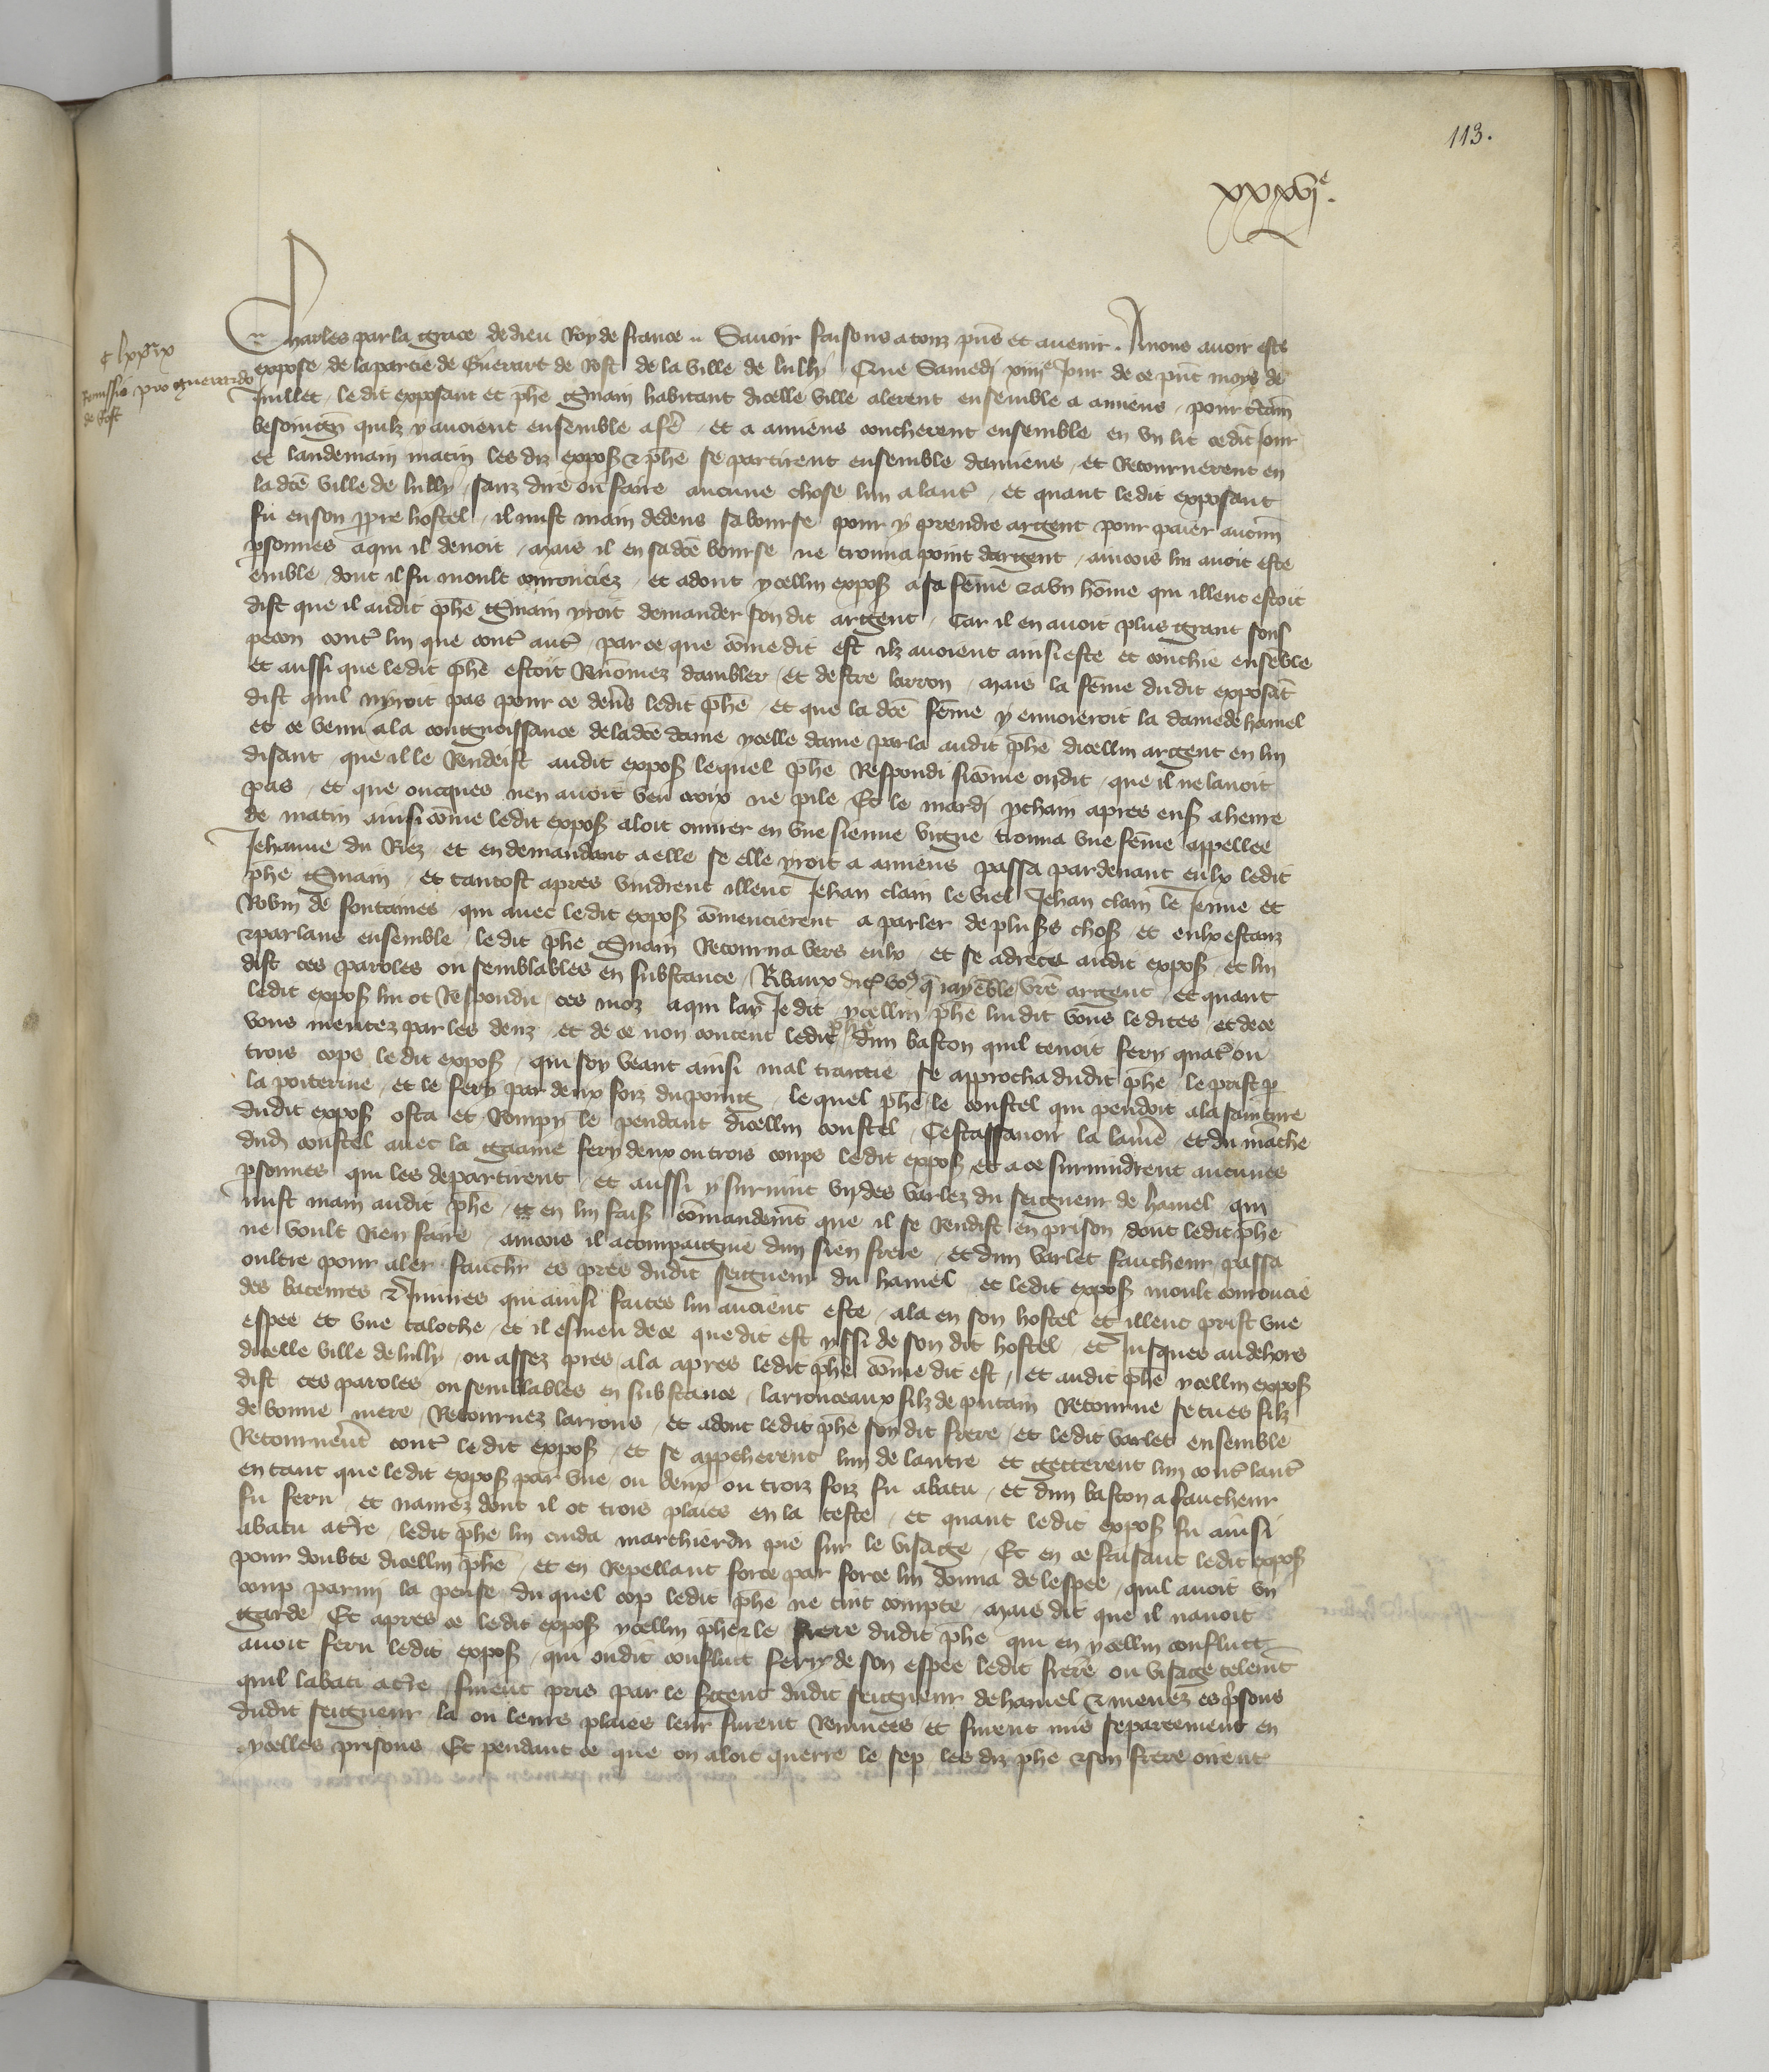 113.
xxxvj^e.
c lxxix
Remissio pro guerardo
de Rost
Charles par la grace de dieu Roy de france .. Savoir faisons a touz pñs et avenir . A nous avoir este
expose de la partie de Guerart de Rost de la ville de lully Que Samedj xiiij^e Jour de ce pñt moys de
Juillet , le dit exposant et phe Gmain habitant dicelle ville alerent ensemble a amiens , pour ctain
besoingn quilz y avoient ensemble a fe , et a amiens coucherent ensemble en un lit ce dit Jour
et landemain matin les diz expos & phe se partirent ensemble damiens , et Retournerent en
la dce ville de lully , sanz dire ou faire aucune chose lun a laut , et quant ledit exposant
fu en son ppre hostel , il mist main dedens sa bourse pour y prendre argent pour paier aucun
psonnes a qui il devoit , mais il en sa dce bourse ne trouva point dargent , aincois lui avoit este
emble , dont il fu moult courrouciez , et adont ycellui expos a sa feme & a un home qui illeuc estoit
dist que il audit phe Gmain yroit demander son dit argent , Car il en avoit plus grant sous
pecon cont lui que cont aut , par ce que come dit est ilz avoient ainsi este et couchie ensemble
et aussi que ledit phe estoit Renomez dambler , et destre larron , mais la feme dudit exposat
dist quil nyroit pas pour ce devs ledit phe , et que la dce feme y envoieroit la dame de hamel
et ce venu a la congnoissance de la dce dame ycelle dame parla audit phe dicellui argent en lui
disant , que il le Rendeist audit expos lequel phe Respondi sicome on dit , que il ne lavoit
pas , et que oncques nen avoit veu croix ne pile , Et le mardj pcham apres ens a heure
de matin ainsi come ledit expos aloit ouvrer en une sienne vigne trouva une feme appellee
Jehanne du Riez , et en demandant a elle se elle yroit a amiens passa par devant eulx ledit
phe Gmain , et tantost apres vindrent illeuc Jehan clain le viel Jehan clain le Jeune et
Robin de fontaines , qui avec ledit expos comencierent a parler de pluss chos , et eulx estanz
& parlans ensemble , le dit phe Gmain Retourna vers eulx , et se adreca audit expos , et lui
dist ces paroles ou semblables en substance , Ribaux dictes vo9 q jay emble vre argent , et quant
ledit expos lui ot Respondu ces moz a qui lay Je dit , ycellui phe lui dit vous le dites , et de ce
vous mentez par les denz , et de ce non content ledit phe dun baston quil tenoit fery quat ou
trois cops le dit expos , qui soy veant ainsi mal traictie se approcha dudit phe , le prist p
la poiterine , et le fery par deux foiz du poing , le quel phe , le coustel qui pendoit a la sainture
dudit expos osta et Rompy le pendant dicellui coustel , Cestassavoir la lanie , et du mache
dud coustel avec la gaaine fery deux ou trois coups ledit expos , et a ce survindrent aucunes
psonnes qui les departirent , et aussi y survint un des varlez du seigneur de hamel qui
mist main audit phe , et en lui fais comandemt que il se Rendist en prison , dont ledit phe
ne voult Rien faire , aincois il acompaigne dun sien frere , et dun varlet faucheur passa
oultre pour aler fauchr es pres dudit seigneur du hamel , et ledit expos moult courroucie
des bateures & Jnjures qui ainsi faites lui avoient este , ala en son hostel et illeuc prist une
espee et une taloche , et il esmeu de ce que dit est yssi de son dit hostel , et Jusques au dehors
dicelle ville de lully , ou assez pres , ala apres ledit phe come dit est , et audit phe ycellui expos
dist ces paroles ou semblables en substance , larronceaux filz de putain Retourne se tu es filz
de bonne mere , Retournez larrons , et adont ledit phe son dit frere , et ledit varlet ensemble
Retournert cont ledit expos , et se appcherent lun de lautre et getterent lun cont laut
en tant que ledit expos par une ou deux ou trois foiz fu abatu , et dun baston a faucheur
fu feru , et navrez dont il ot trois plaies en la teste , et quant ledit expos fu ainsi
abatu a tre , ledit phe lui cuida marchier du pie sur le visage , Et en ce faisant ledit expos
pour doubte dicellui phe , et en Repellant force par force lui donna de lespee , quil avoit un
coup parmi la pense , du quel cop ledit phe ne tint compte , mais dit que il navoit
garde , Et apres ce ledit expos ycellui phe & le frere dudit phe qui en ycellui conflict
avoit feru ledit expos , qui oudit conflict fery de son espee ledit frere ou visage telemt
quil labati a tre , furent pris par le sgent dudit seigneur de hamel & menez es psons
dudit seigneur , la ou leurs plaies leur furent Remuees et furent mis separeement en
ycelles prisons , Et pendant ce que on aloit querre le sep les diz phe & son frere oirent